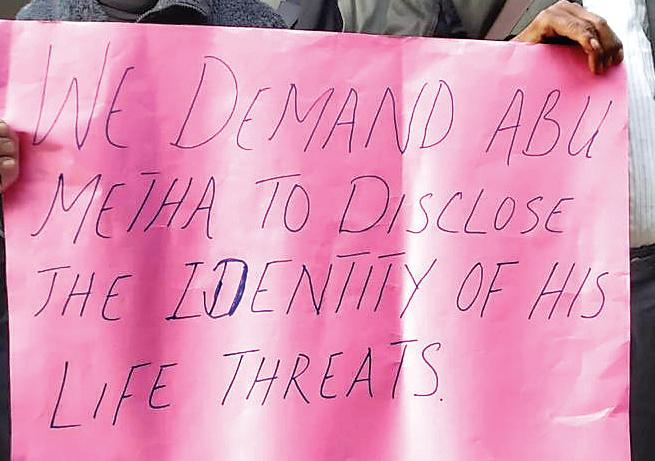 WE DEMAND ABU
METHA TO DISCLOSE
THE IDENTITY OF HIS
LIFE THREATS.